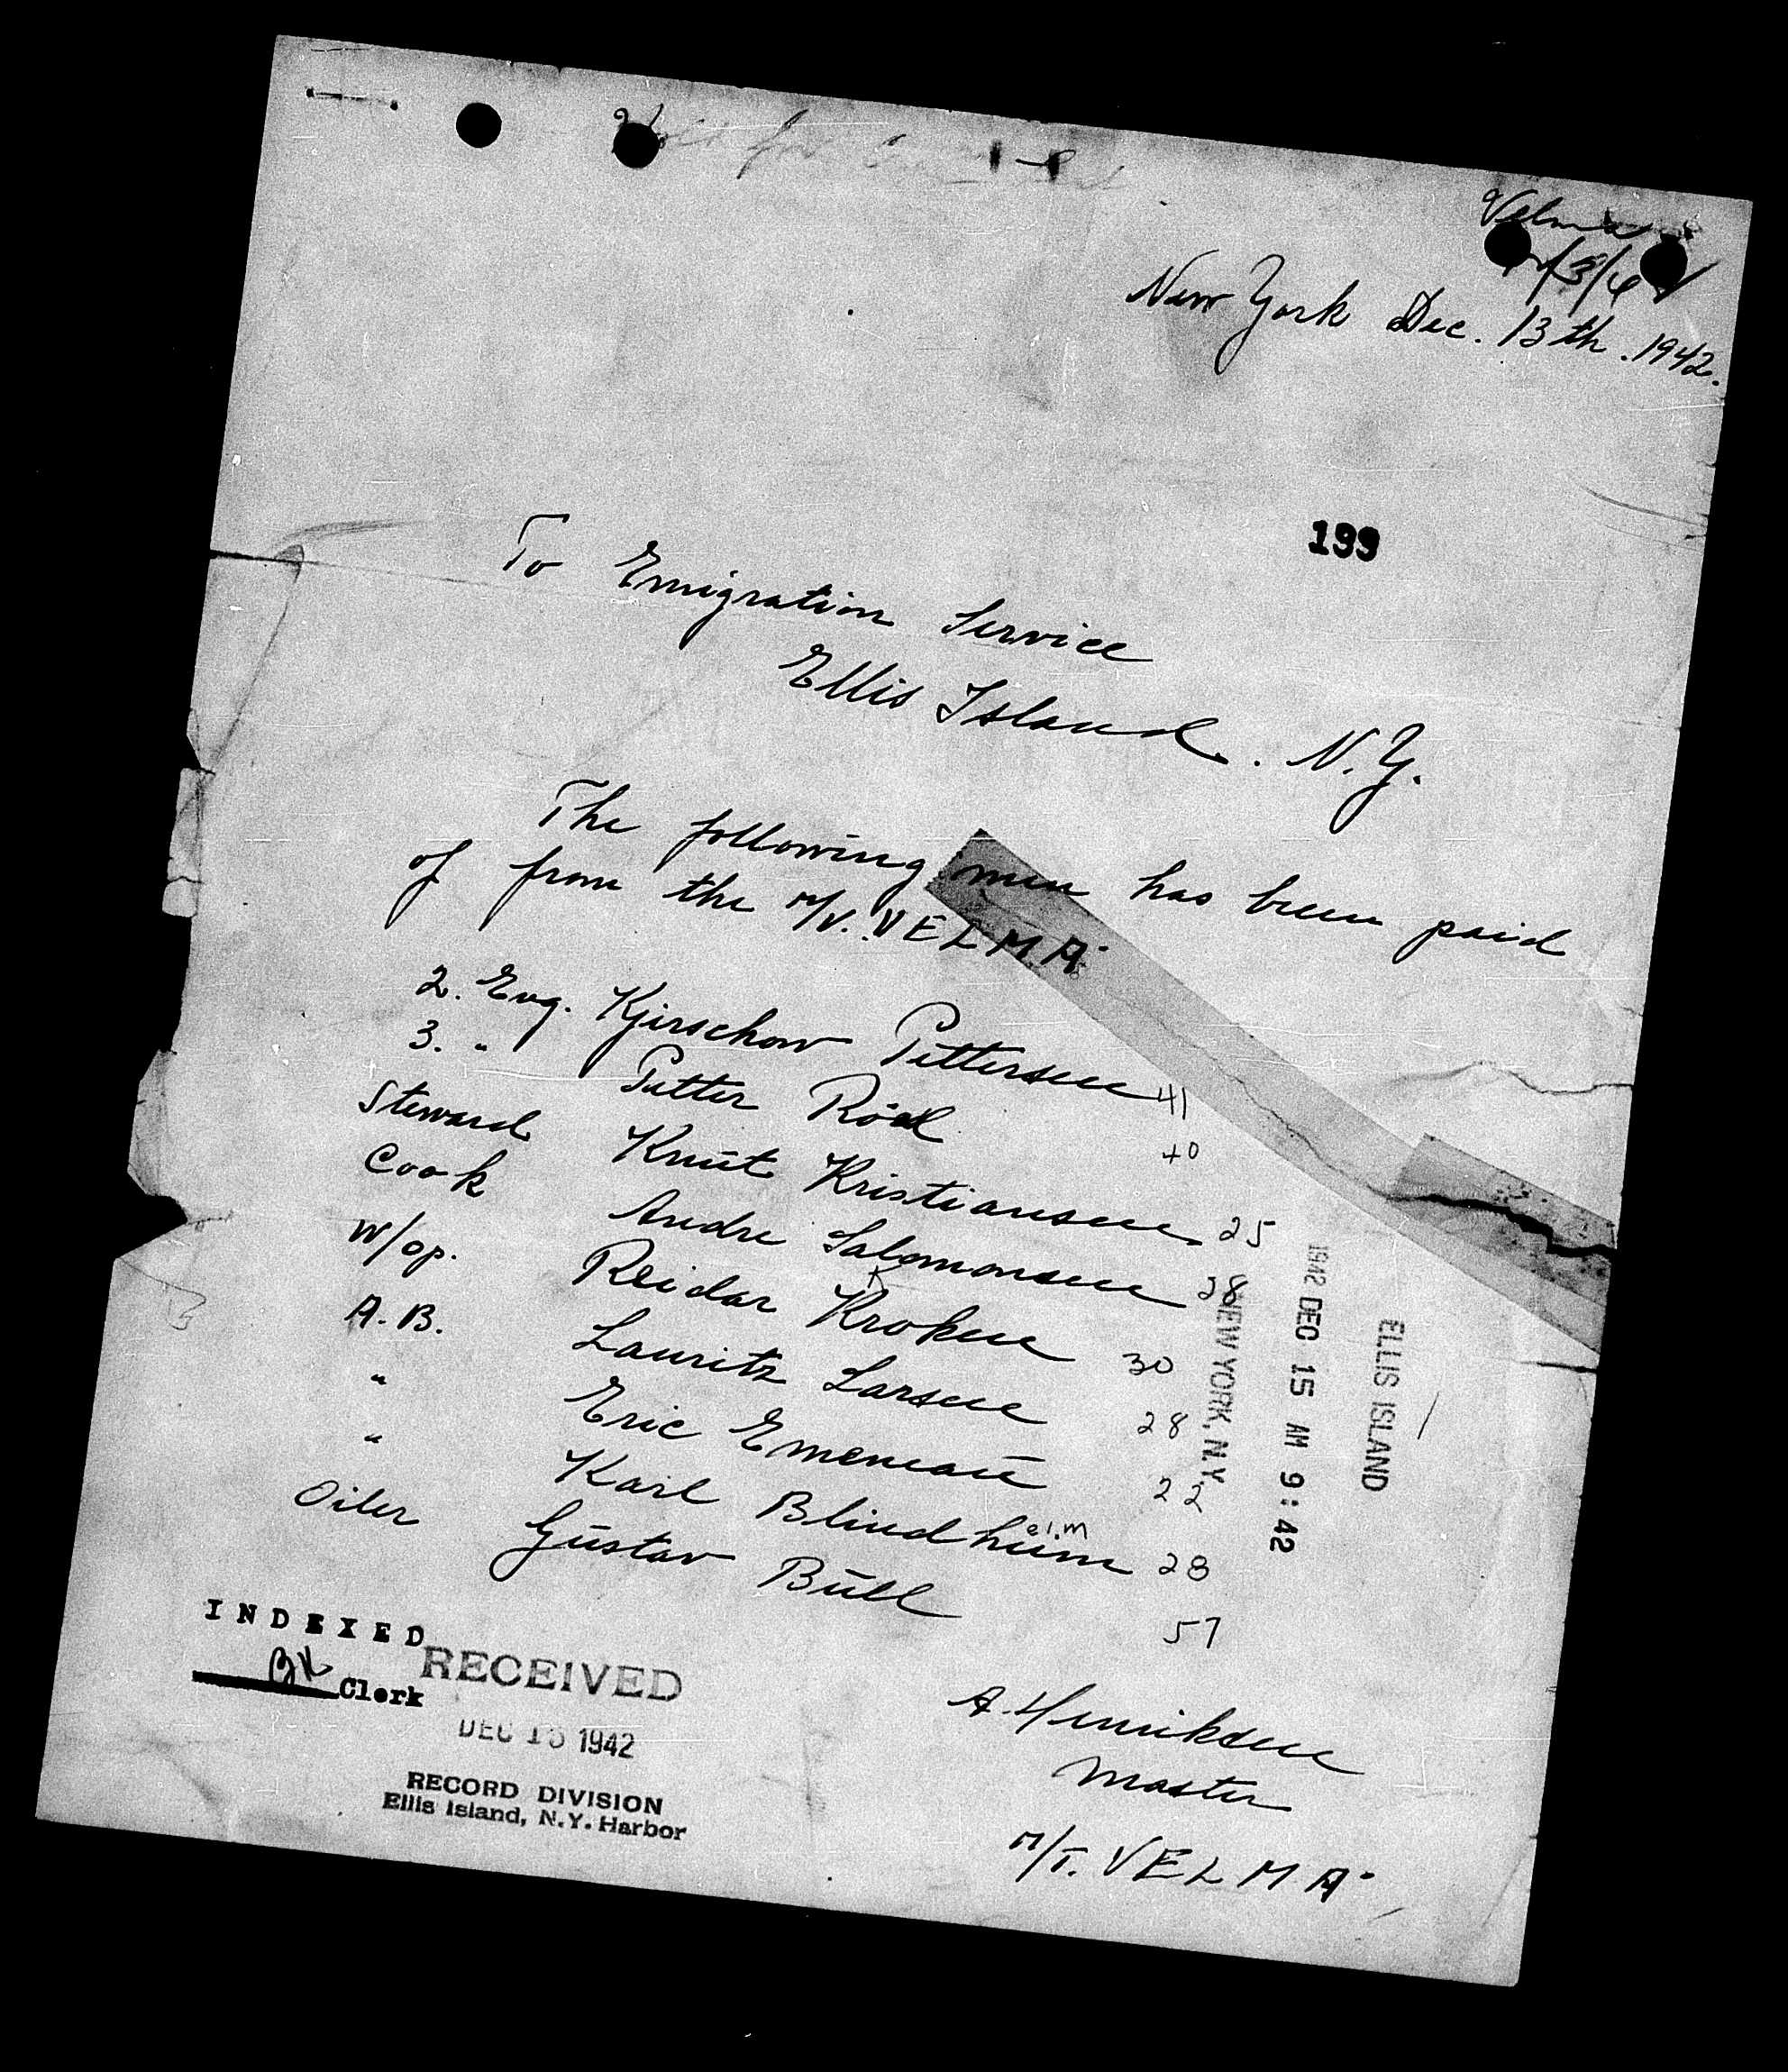 Velma
New York Dec. 13th. 1942.
199
To Emigration Service
Ellis Island. N.Y.
The following men has been paid
of from the M/V. "VELMA"
2. Eng. Kjirschow Pettersen 41
3. " Petter Röed 40
Steward Knut Kristiansen 25
Cook Andre Salomonsen 28
W/op. Reidar Kroken 30
A.B. Lauritz Larsen 28
" Eric Emeneau 22
" Karl Blindheim 28
eim
Oiler Gustav Bull 57
NEW YORK, N.Y.
1942 DEC 15 AM 9:42
ELLIS ISLAND
INDEXED
Clerk
RECEIVED
DEC 15 1942
RECORD DIVISION
Ellis Island, N.Y. Harbor
A. Henriksen
Master
M/T. VELMA"